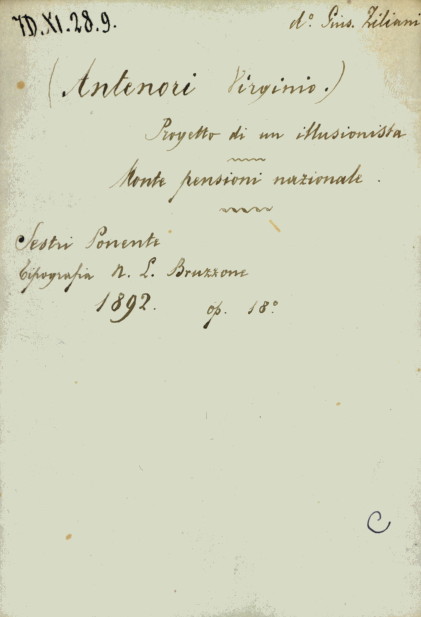 7D.XI.28.9.
d.° Gius. Ziliani
(Antenori Virginio.)
Progetto di un illusionista
Monte pensioni nazionale.
Sestri Ponente
Tipografia N. L. Bruzzone
1892. op. 18°
C